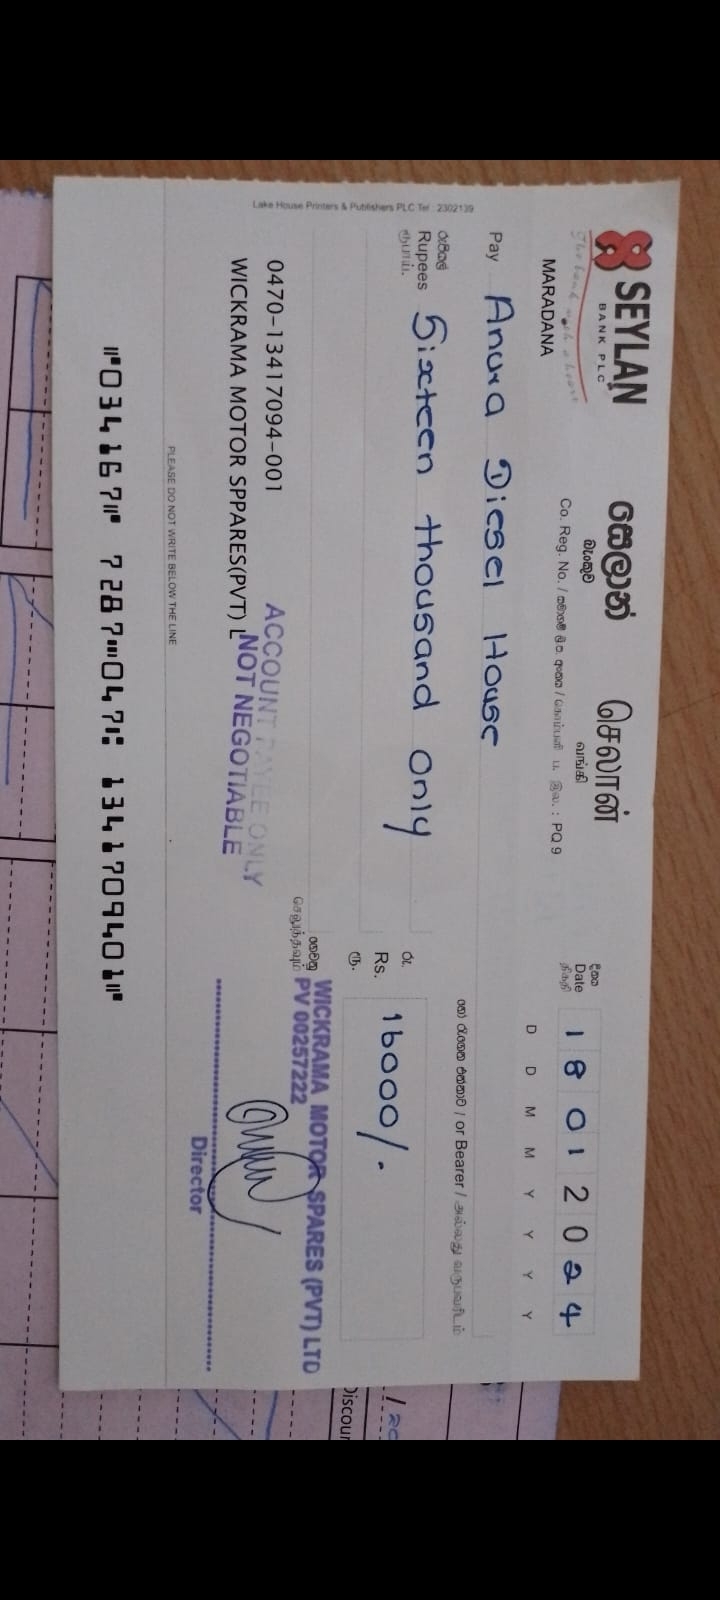 SEYLAN
BANK PLC
The bank with a heart
MARADANA
සෙලාන්
බැංකුව
செலான்
வங்கி
Co. Reg. No. / PQ 9
දිනය
Date
திகதி
1 8 0 1 2 0 2 4
D D M M Y Y Y Y
Pay Anura Diesel House
හෝ රැගෙන එන්නාට / or Bearer / அல்லது வருபவரிடம்
රුපියල්
Rupees Sixteen thousand Only
ரூபாய்.
රු.
Rs. 16000/-
ரூ.
ගෙවනු
செலுத்தவும்
0470-13417094-001
WICKRAMA MOTOR SPPARES(PVT) L
ACCOUNT PAYEE ONLY
NOT NEGOTIABLE
WICKRAMA MOTOR SPARES (PVT) LTD
PV 00257222
Director
PLEASE DO NOT WRITE BELOW THE LINE
⑈034167⑈ 7287⑉047⑆ 1341709401⑈
Lake House Printers & Publishers PLC Tel : 2302139
Discoun